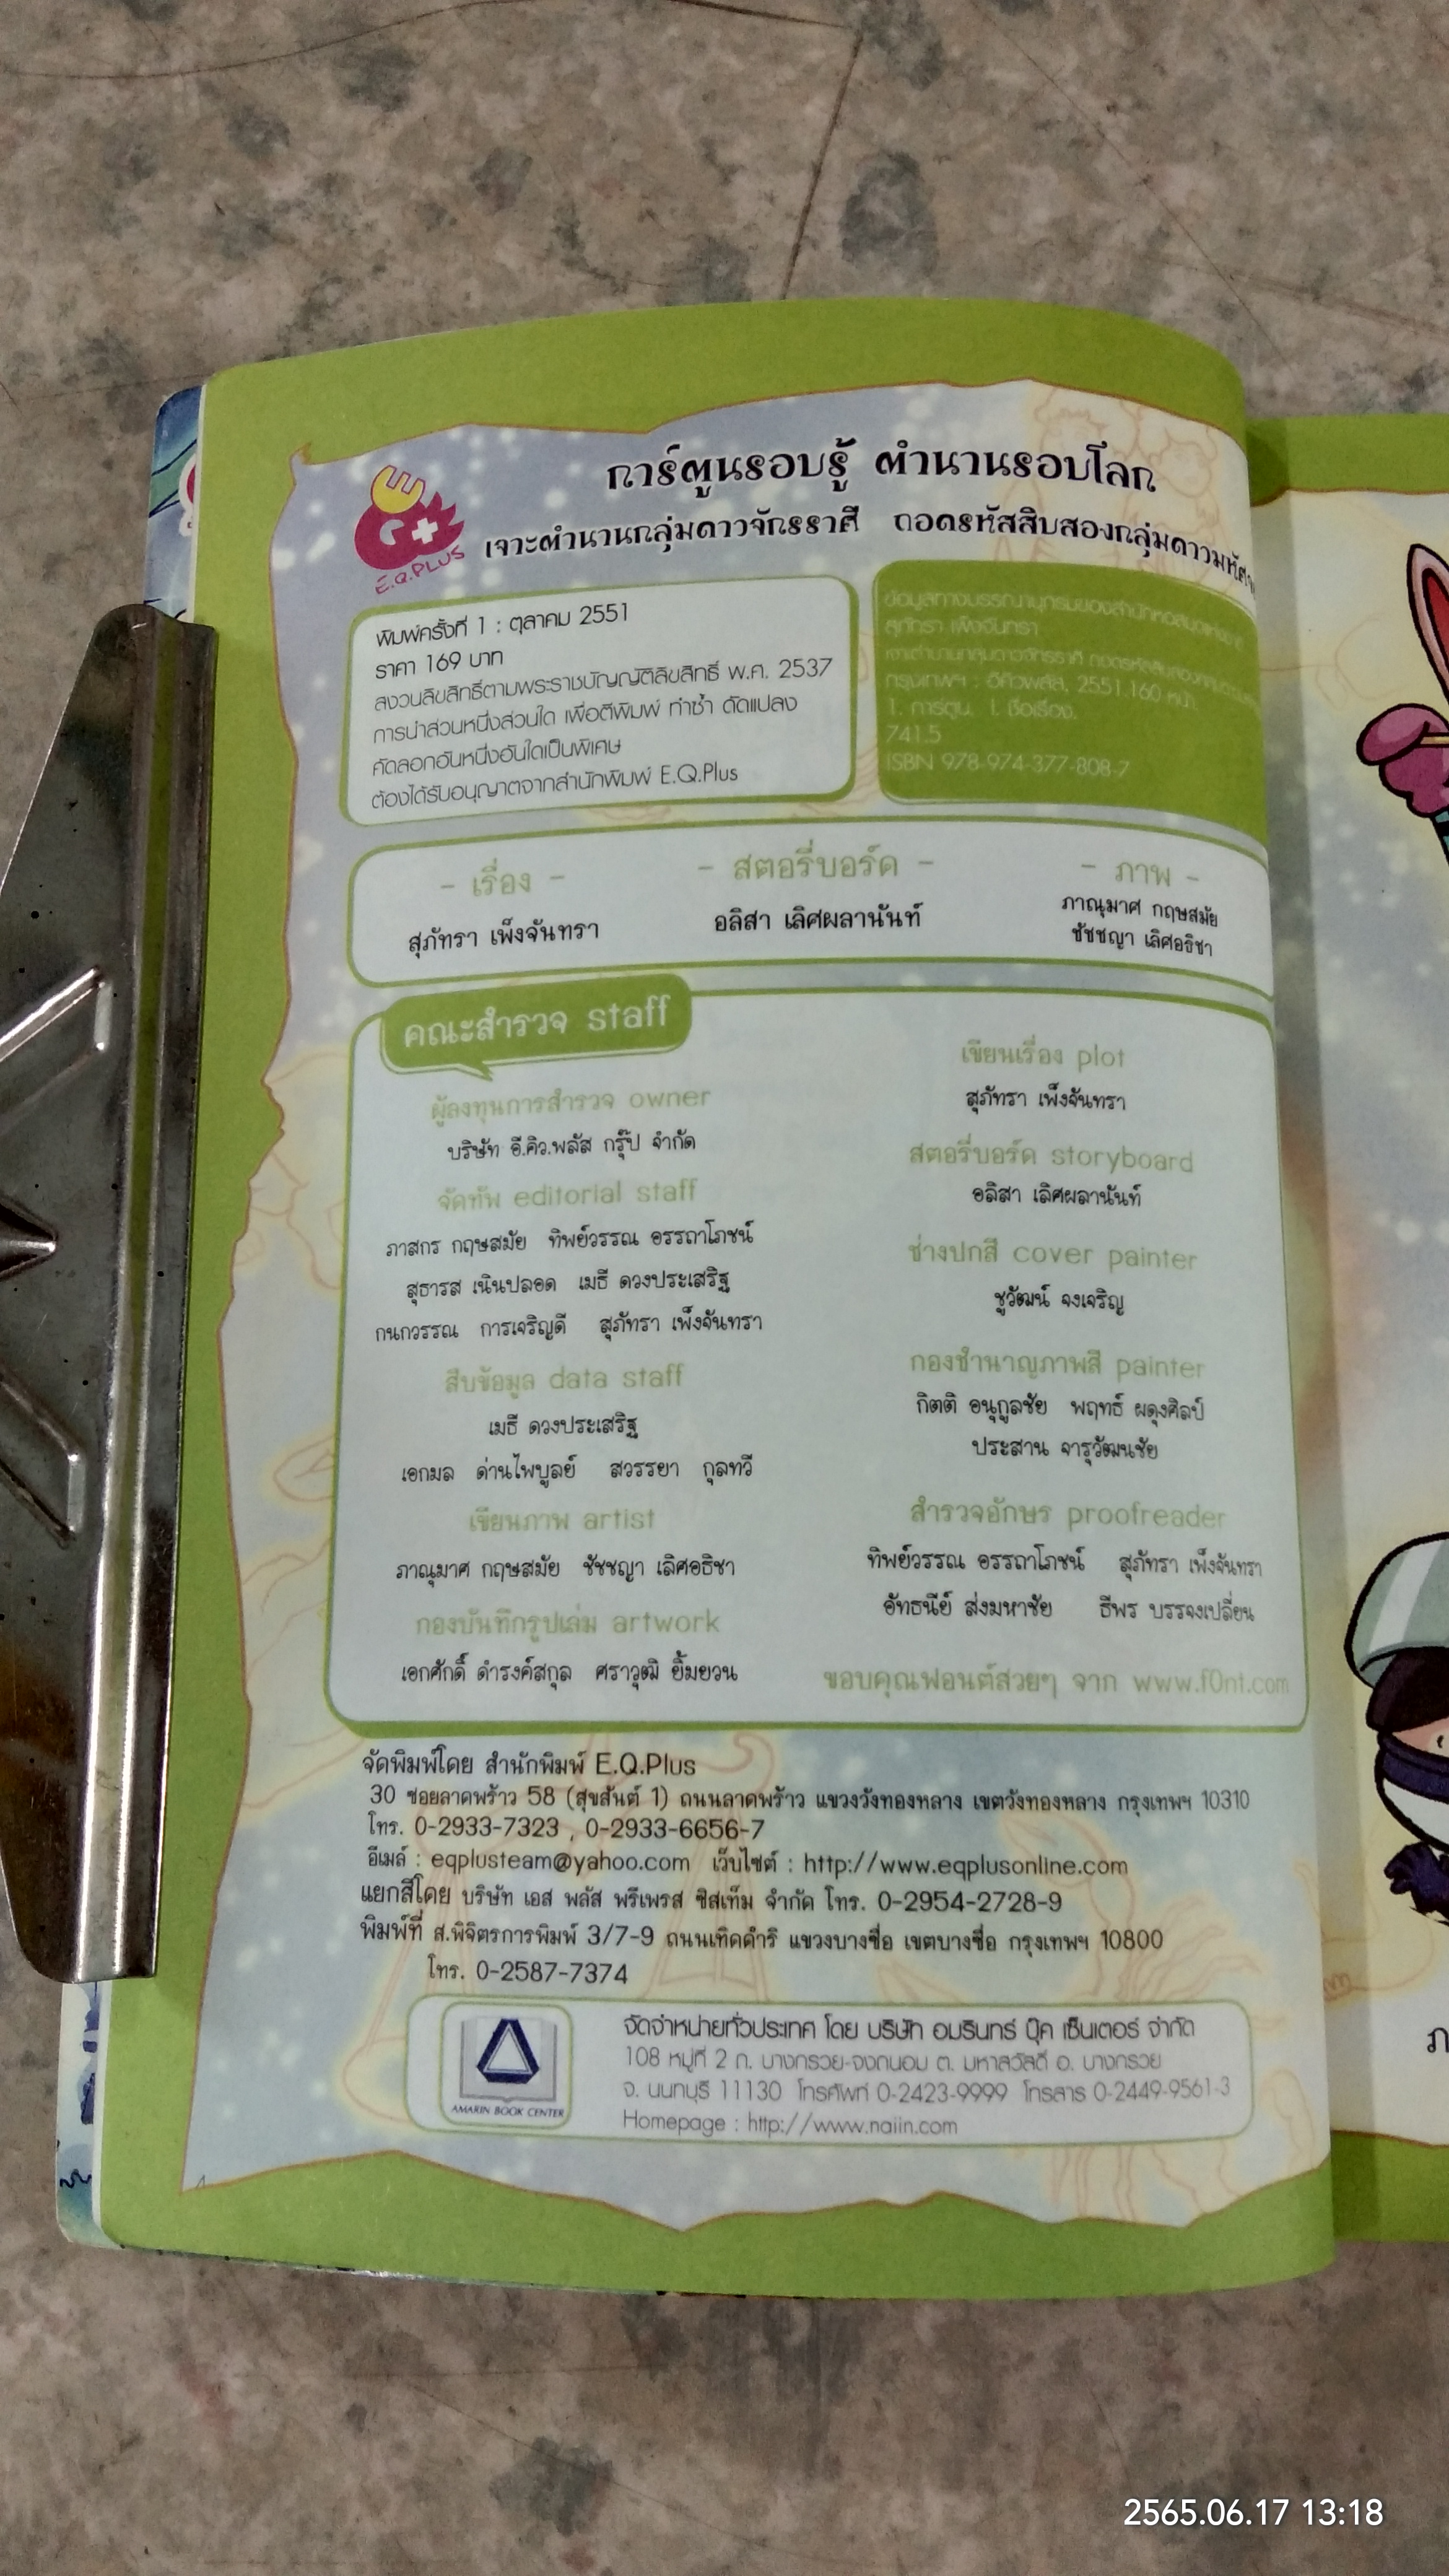 การ์ตูนรอบรู้ ตำนานรอบโลก
เจาะตำนานกลุ่มดาวจักรราศี ถอดรหัสสิบสองกลุ่มดาวมหัศ
E.Q.PLUS
พิมพ์ครั้งที่ 1 : ตุลาคม 2551
ราคา 169 บาท
สงวนลิขสิทธิ์ตามพระราชบัญญัติลิขสิทธิ์ พ.ศ. 2537
การนำส่วนหนึ่งส่วนใด เพื่อตีพิมพ์ ทำซ้ำ ดัดแปลง
คัดลอกอันหนึ่งอันใดเป็นพิเศษ
ต้องได้รับอนุญาตจากสำนักพิมพ์ E.Q.Plus
ข้อมูลทางบรรณานุกรมของสำนักหอสมุดแห่งชาติ
สุภัทรา เพ็งจันทรา
เจาะตำนานกลุ่มดาวจักรราศี ถอดรหัสสิบสองกลุ่มดาว
กรุงเทพฯ : อีคิวพลัส, 2551.160 หน้า.
1. การ์ตูน. I. ชื่อเรื่อง.
741.5
ISBN 978-974-377-808-7
- เรื่อง -
สุภัทรา เพ็งจันทรา
- สตอรี่บอร์ด -
อลิสา เลิศผลานันท์
- ภาพ -
ภาณุมาศ กฤษสมัย
ชัชชญา เลิศอธิชา
คณะสำรวจ staff
ผู้ลงทุนการสำรวจ owner
บริษัท อี.คิว.พลัส กรุ๊ป จำกัด
จัดทัพ editorial staff
ภาสกร กฤษสมัย ทิพย์วรรณ อรรถาโภชน์
สุธารส เนินปลอด เมธี ดวงประเสริฐ
กนกวรรณ การเจริญดี สุภัทรา เพ็งจันทรา
สืบข้อมูล data staff
เมธี ดวงประเสริฐ
เอกมล ด่านไพบูลย์ สวรรยา กุลทวี
เขียนภาพ artist
ภาณุมาศ กฤษสมัย ชัชชญา เลิศอธิชา
กองบันทึกรูปเล่ม artwork
เอกศักดิ์ ดำรงค์สกุล ศราวุฒิ ยิ้มยวน
เขียนเรื่อง plot
สุภัทรา เพ็งจันทรา
สตอรี่บอร์ด storyboard
อลิสา เลิศผลานันท์
ช่างปกสี cover painter
ชูวัฒน์ จงเจริญ
กองชำนาญภาพสี painter
กิตติ อนุกูลชัย พฤทธ์ ผดุงศิลป์
ประสาน จารุวัฒนชัย
สำรวจอักษร proofreader
ทิพย์วรรณ อรรถาโภชน์ สุภัทรา เพ็งจันทรา
อัทธนีย์ ส่งมหาชัย ธีพร บรรจงเปลี่ยน
ขอบคุณฟอนต์สวยๆ จาก www.f0nt.com
จัดพิมพ์โดย สำนักพิมพ์ E.Q.Plus
30 ซอยลาดพร้าว 58 (สุขสันต์ 1) ถนนลาดพร้าว แขวงวังทองหลาง เขตวังทองหลาง กรุงเทพฯ 10310
โทร. 0-2933-7323 , 0-2933-6656-7
อีเมล์ : eqplusteam@yahoo.com เว็บไซต์ : http://www.eqplusonline.com
แยกสีโดย บริษัท เอส พลัส พรีเพรส ซิสเท็ม จำกัด โทร. 0-2954-2728-9
พิมพ์ที่ ส.พิจิตรการพิมพ์ 3/7-9 ถนนเทิดดำริ แขวงบางซื่อ เขตบางซื่อ กรุงเทพฯ 10800
โทร. 0-2587-7374
AMARIN BOOK CENTER
จัดจำหน่ายทั่วประเทศ โดย บริษัท อมรินทร์ บุ๊ค เซ็นเตอร์ จำกัด
108 หมู่ที่ 2 ถ. บางกรวย-จงถนอม ต. มหาสวัสดิ์ อ. บางกรวย
จ. นนทบุรี 11130 โทรศัพท์ 0-2423-9999 โทรสาร 0-2449-9561-3
Homepage : http://www.naiin.com
2565.06.17 13:18